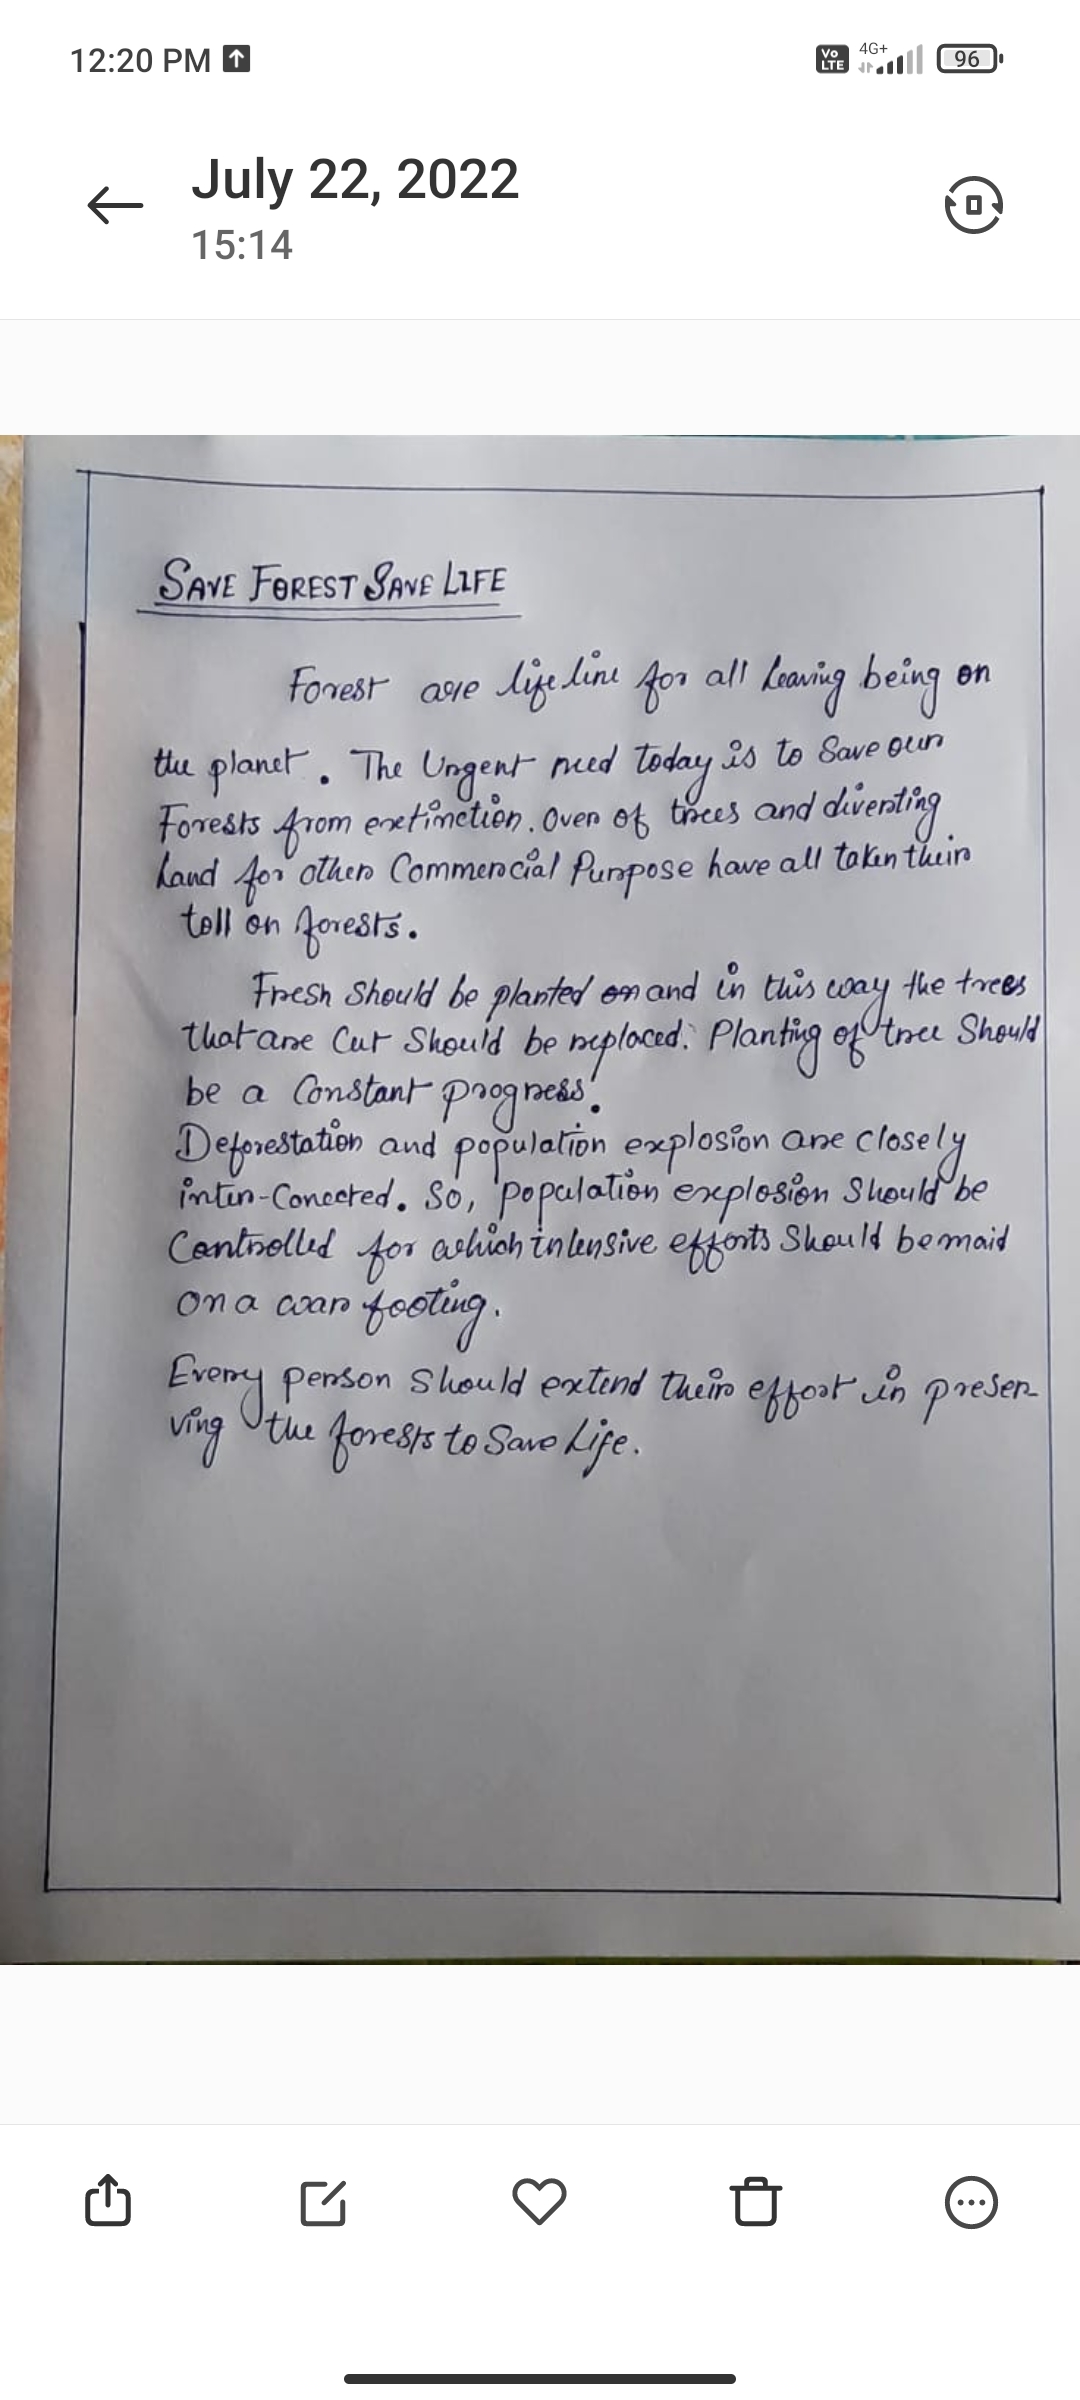 12:20 PM
Vo LTE 4G+ 96
July 22, 2022
15:14
SAVE FOREST SAVE LIFE
Forest are life line for all leaving being on
the planet. The Urgent need today is to Save our
Forests from extinction. Over of trees and diverting
Land for other Commercial Purpose have all taken their
toll on forests.
Fresh Should be planted on and in this way the trees
that are Cut Should be replaced. Planting of tree Should
be a Constant progress.
Deforestation and population explosion are closely
inter-Conected. So, population explosion Should be
Controlled for which intensive efforts Should be maid
on a war footing.
Every person Should extend their effort in preser-
ving the forests to Save Life.